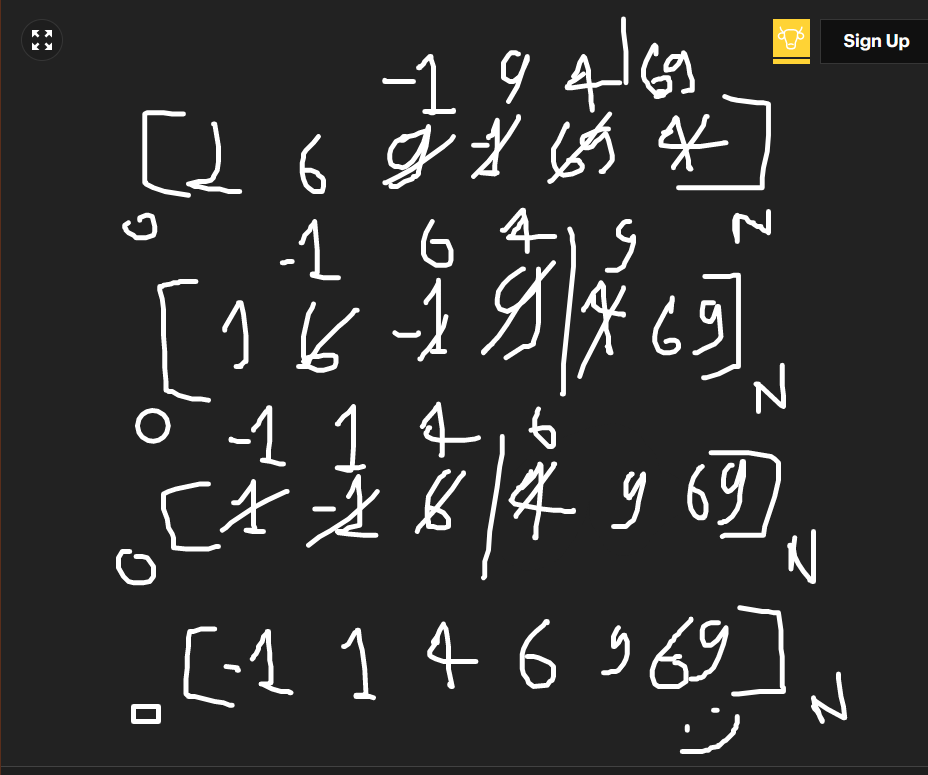 Sign Up
-1 9 4 | 69
[ 1 6 9 -1 69 4 ]
0 N
-1 6 4 9
[ 1 6 -1 9 | 4 69 ]
0 N
-1 1 4 6
[ 1 -1 6 | 4 9 69 ]
0 N
[ -1 1 4 6 9 69 ]
N
:)